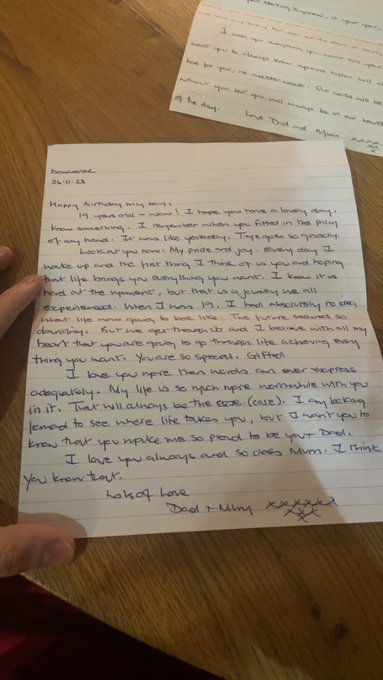 when starting
I wish you everything you want this year.
want you to always know
here for you, no matter what. Our world will be
without you but you will always be in our hearts
of the day.
Love Dad and Mum xxxx
DONCASTER
26.11.23
Happy Birthday my boy.
19 years old - wow! I hope you have a lovely day.
know something. I remember when you fitted in the palm
of my hand. It was like yesterday. Time goes so quickly.
Look at you now. My pride and joy. Every day I
wake up and the first thing I think of is you and hoping
that life brings you everything you want. I know it is
hard at the moment, but that is a journey we all
experienced. When I was 19, I had absolutely no idea
what life was going to look like. The future seemed so
daunting. But we get through it and I believe with all my
heart that you are going to go through life achieving every
thing you want. You are so special. Gifted.
I love you more than words can ever express
adequately. My life is so much more worthwhile with you
in it. That will always be the (case). I am looking
forward to see where life takes you, but I want you to
know that you make me so proud to be your Dad.
I love you always and so does Mum. I think
you know that.
Lots of Love
Dad + Mum xxxxxx
xxx